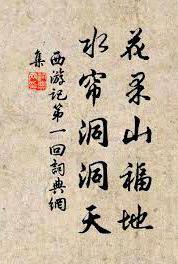 花果山福地
水帘洞洞天
西游记第一回詞典網
集